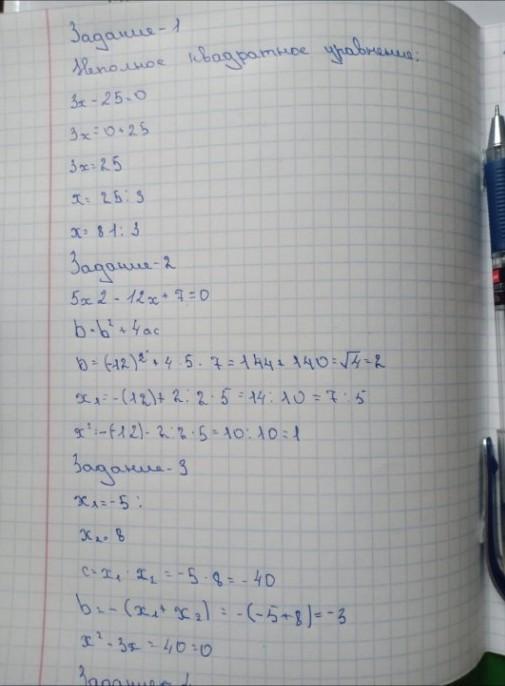 Задание-1
Неполное квадратное уравнение:
3x-25=0
3x=0+25
3x=25
x= 25:3
x= 81:3
Задание-2
5x2-12x+7=0
D=b²+4ac
D=(-12)²+4·5·7=144+140=√4=2
x₁=-(12)+2:2·5=14:10=7:5
x²=-(12)-2:2·5=10:10=1
Задание-3
x₁=-5:
x₂=8
c=x₁·x₂=-5·8=-40
b=-(x₁+x₂)=-(-5+8)=-3
x²-3x=40=0